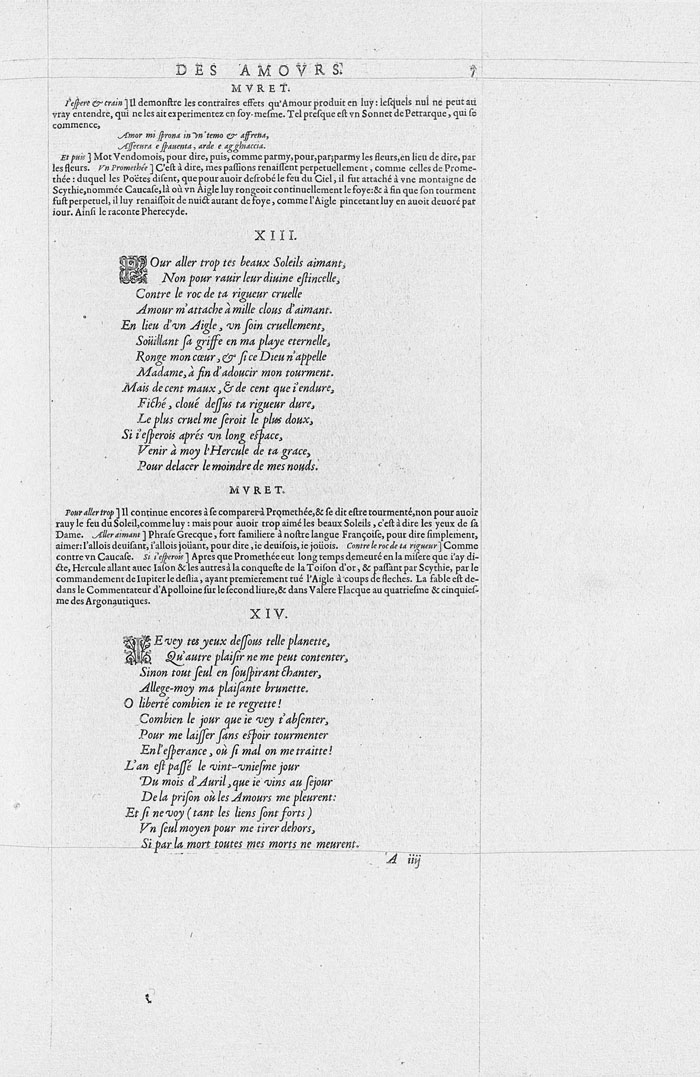 DES AMOVRS. 7
MVRET.
I'eſpere & crain ] Il demonſtre les contraires effets qu'Amour produit en luy: leſquels nul ne peut au
vray entendre, qui ne les ait experimentez en ſoy-meſme. Tel preſque eſt vn Sonnet de Petrarque, qui ſe
commence,
Amor mi ſprona in vn'temo & affrena,
Aſſecura e ſpauenta, arde e agghiaccia.
Et puis ] Mot Vendomois, pour dire, puis, comme parmy, pour, par; parmy les fleurs, en lieu de dire, par
les fleurs. Vn Promethée ] C'eſt à dire, mes paſſions renaiſſent perpetuellement, comme celles de Prome-
thée: duquel les Poëtes diſent, que pour auoir deſrobé le feu du Ciel, il fut attaché à vne montaigne de
Scythie, nommée Caucaſe, là où vn Aigle luy rongeoit continuellement le foye: & à fin que ſon tourment
fuſt perpetuel, il luy renaiſſoit de nuict autant de foye, comme l'Aigle pincetant luy en auoit deuoré par
iour. Ainſi le raconte Pherecyde.
XIII.
POur aller trop tes beaux Soleils aimant,
Non pour rauir leur diuine eſtincelle,
Contre le roc de ta rigueur cruelle
Amour m'attache à mille clous d'aimant.
En lieu d'vn Aigle, vn ſoin cruellement,
Soüillant ſa griffe en ma playe eternelle,
Ronge mon cœur, & ſi ce Dieu n'appelle
Madame, à fin d'adoucir mon tourment.
Mais de cent maux, & de cent que i'endure,
Fiché, cloué deſſus ta rigueur dure,
Le plus cruel me ſeroit le plus doux,
Si i'eſperois aprés vn long eſpace,
Venir à moy l'Hercule de ta grace,
Pour delacer le moindre de mes nouds.
MVRET.
Pour aller trop ] Il continue encores à ſe comparer à Promethée, & ſe dit eſtre tourmenté, non pour auoir
rauy le feu du Soleil, comme luy: mais pour auoir trop aimé les beaux Soleils, c'eſt à dire les yeux de ſa
Dame. Aller aimant ] Phraſe Grecque, fort familiere à noſtre langue Françoiſe, pour dire ſimplement,
aimer: l'allois deuiſant, i'allois joüant, pour dire, ie deuiſois, ie joüois. Contre le roc de ta rigueur ] Comme
contre vn Caucaſe. Si i'eſperois ] Apres que Promethée eut long temps demeuré en la miſere que i'ay di-
cte, Hercule allant auec Iaſon & les autres à la conqueſte de la Toiſon d'or, & paſſant par Scythie, par le
commandement de Iupiter le deſlia, ayant premierement tué l'Aigle à coups de fleches. La fable eſt de-
dans le Commentateur d'Apolloine ſur le ſecond liure, & dans Valere Flacque au quatrieſme & cinquieſ-
me des Argonautiques.
XIV.
IE vey tes yeux deſſous telle planette,
Qu'autre plaiſir ne me peut contenter,
Sinon tout ſeul en ſouſpirant chanter,
Allege-moy ma plaiſante brunette.
O liberté combien ie te regrette!
Combien le jour que ie vey t'abſenter,
Pour me laiſſer ſans eſpoir tourmenter
En l'eſperance, où ſi mal on me traitte!
L'an eſt paſſé le vint-vnieſme jour
Du mois d'Auril, que ie vins au ſejour
De la priſon où les Amours me pleurent:
Et ſi ne voy (tant les liens ſont forts)
Vn ſeul moyen pour me tirer dehors,
Si par la mort toutes mes morts ne meurent.
A iiij